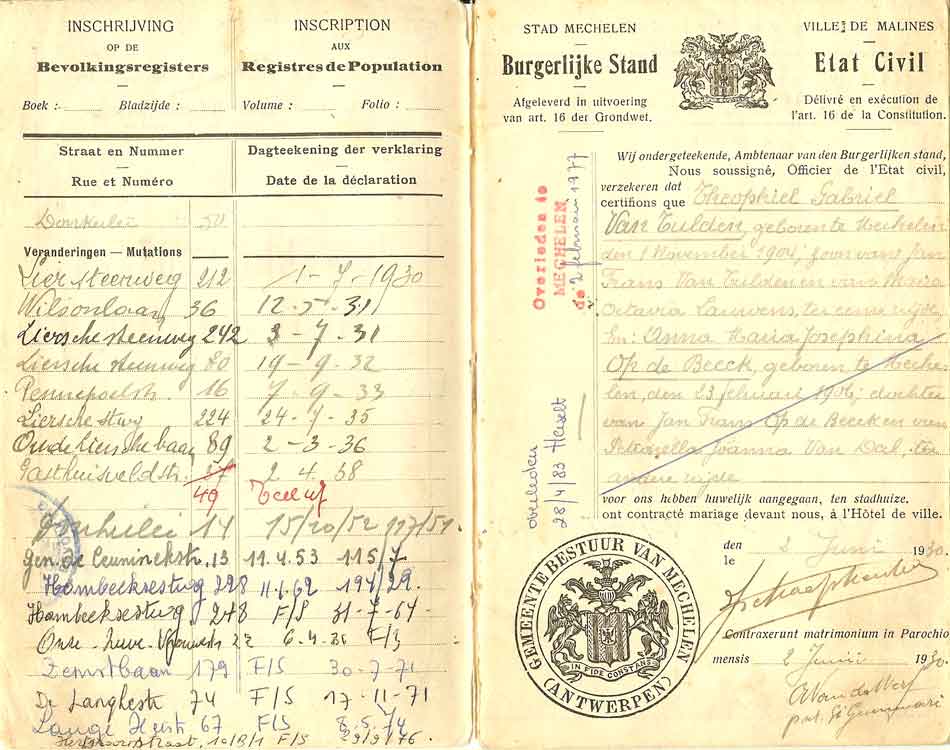 INSCHRIJVING
OP DE
Bevolkingsregisters
Boek : Bladzijde :
INSCRIPTION
AUX
Registres de Population
Volume : Folio :
Straat en Nummer
Rue et Numéro
Dagteekening der verklaring
Date de la déclaration
50
Veranderingen — Mutations
Lier steenweg 212 1-7-1930
Wilsonlaan 36 12-5-31
Liersche steenweg 242 3-7-31
Liersche steenweg 80 19-9-32
Pennepoelstr. 16 7-9-33
Liersche stwg 224 24-7-35
Oude Liersche baan 89 2-3-36
Gasthuisveldstr. 2.4.38
49
14 15/10/52
Gen. de Ceuninckstr. 13 11.4.53 115/7
Hombeeksestwg 228 194/29
Hombeeksestwg 248 F/S 31-7-64
Onze F/S
Zemstbaan 179 F/S 30-7-71
De Langhestr 74 F/S 17-11-71
Lange 67 F/S 8.5.74
F/S 29/9/76
STAD MECHELEN
Burgerlijke Stand
Afgeleverd in uitvoering
van art. 16 der Grondwet.
VILLE DE MALINES
Etat Civil
Délivré en exécution de
l'art. 16 de la Constitution.
Wij ondergeteekende, Ambtenaar van den Burgerlijken stand,
Nous soussigné, Officier de l'Etat civil,
verzekeren dat
certifions que Theophiel Gabriel
Van Tulden, geboren te Mechelen
den 1 November 1904, zoon van Jan
Frans Van Tulden en van Maria
Octavia Lauwens, ter eenre zijde,
En: Anna Maria Josephina
Op de Beeck, geboren te Meche-
len, den 23 februari 1906; dochter
van Jan Frans Op de Beeck en van
Petronella Joanna Van Dal, ter
andere zijde
voor ons hebben huwelijk aangegaan, ten stadhuize.
ont contracté mariage devant nous, à l'Hôtel de ville.
Overleden te
MECHELEN
de 2 februari 1977
overleden
28/4/83 Hasselt
den
le 2 Juni 1930.
Contraxerunt matrimonium in Parochio
mensis 2 Junii 1930.
GEMEENTE BESTUUR VAN MECHELEN
IN FIDE CONSTANS
(ANTWERPEN)